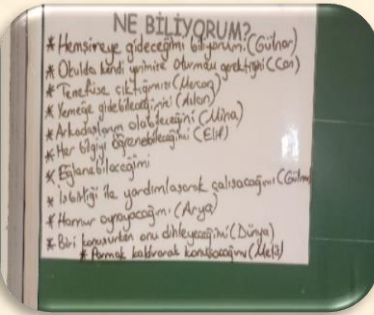 NE BİLİYORUM?
* Hemşireye gideceğimi biliyorum. (Gülnar)
* Okulda kendi yerimize oturmam gerektiğini (Can)
* Tenefüse çıktığımızı
* Yemeğe gidebileceğimizi
* Arkadaşlarım olabileceğini (Mina)
* Her bilgiyi öğrenebileceğimi (Elif)
* Eğlenebileceğimi
* İşbirliği ile yardımlaşarak çalışacağımı (Gülnar
* Hamur oynayacağımı (Arya)
* Biri konuşurken onu dinleyeceğimi (Dünya)
* Parmak kaldırarak konuşacağımı